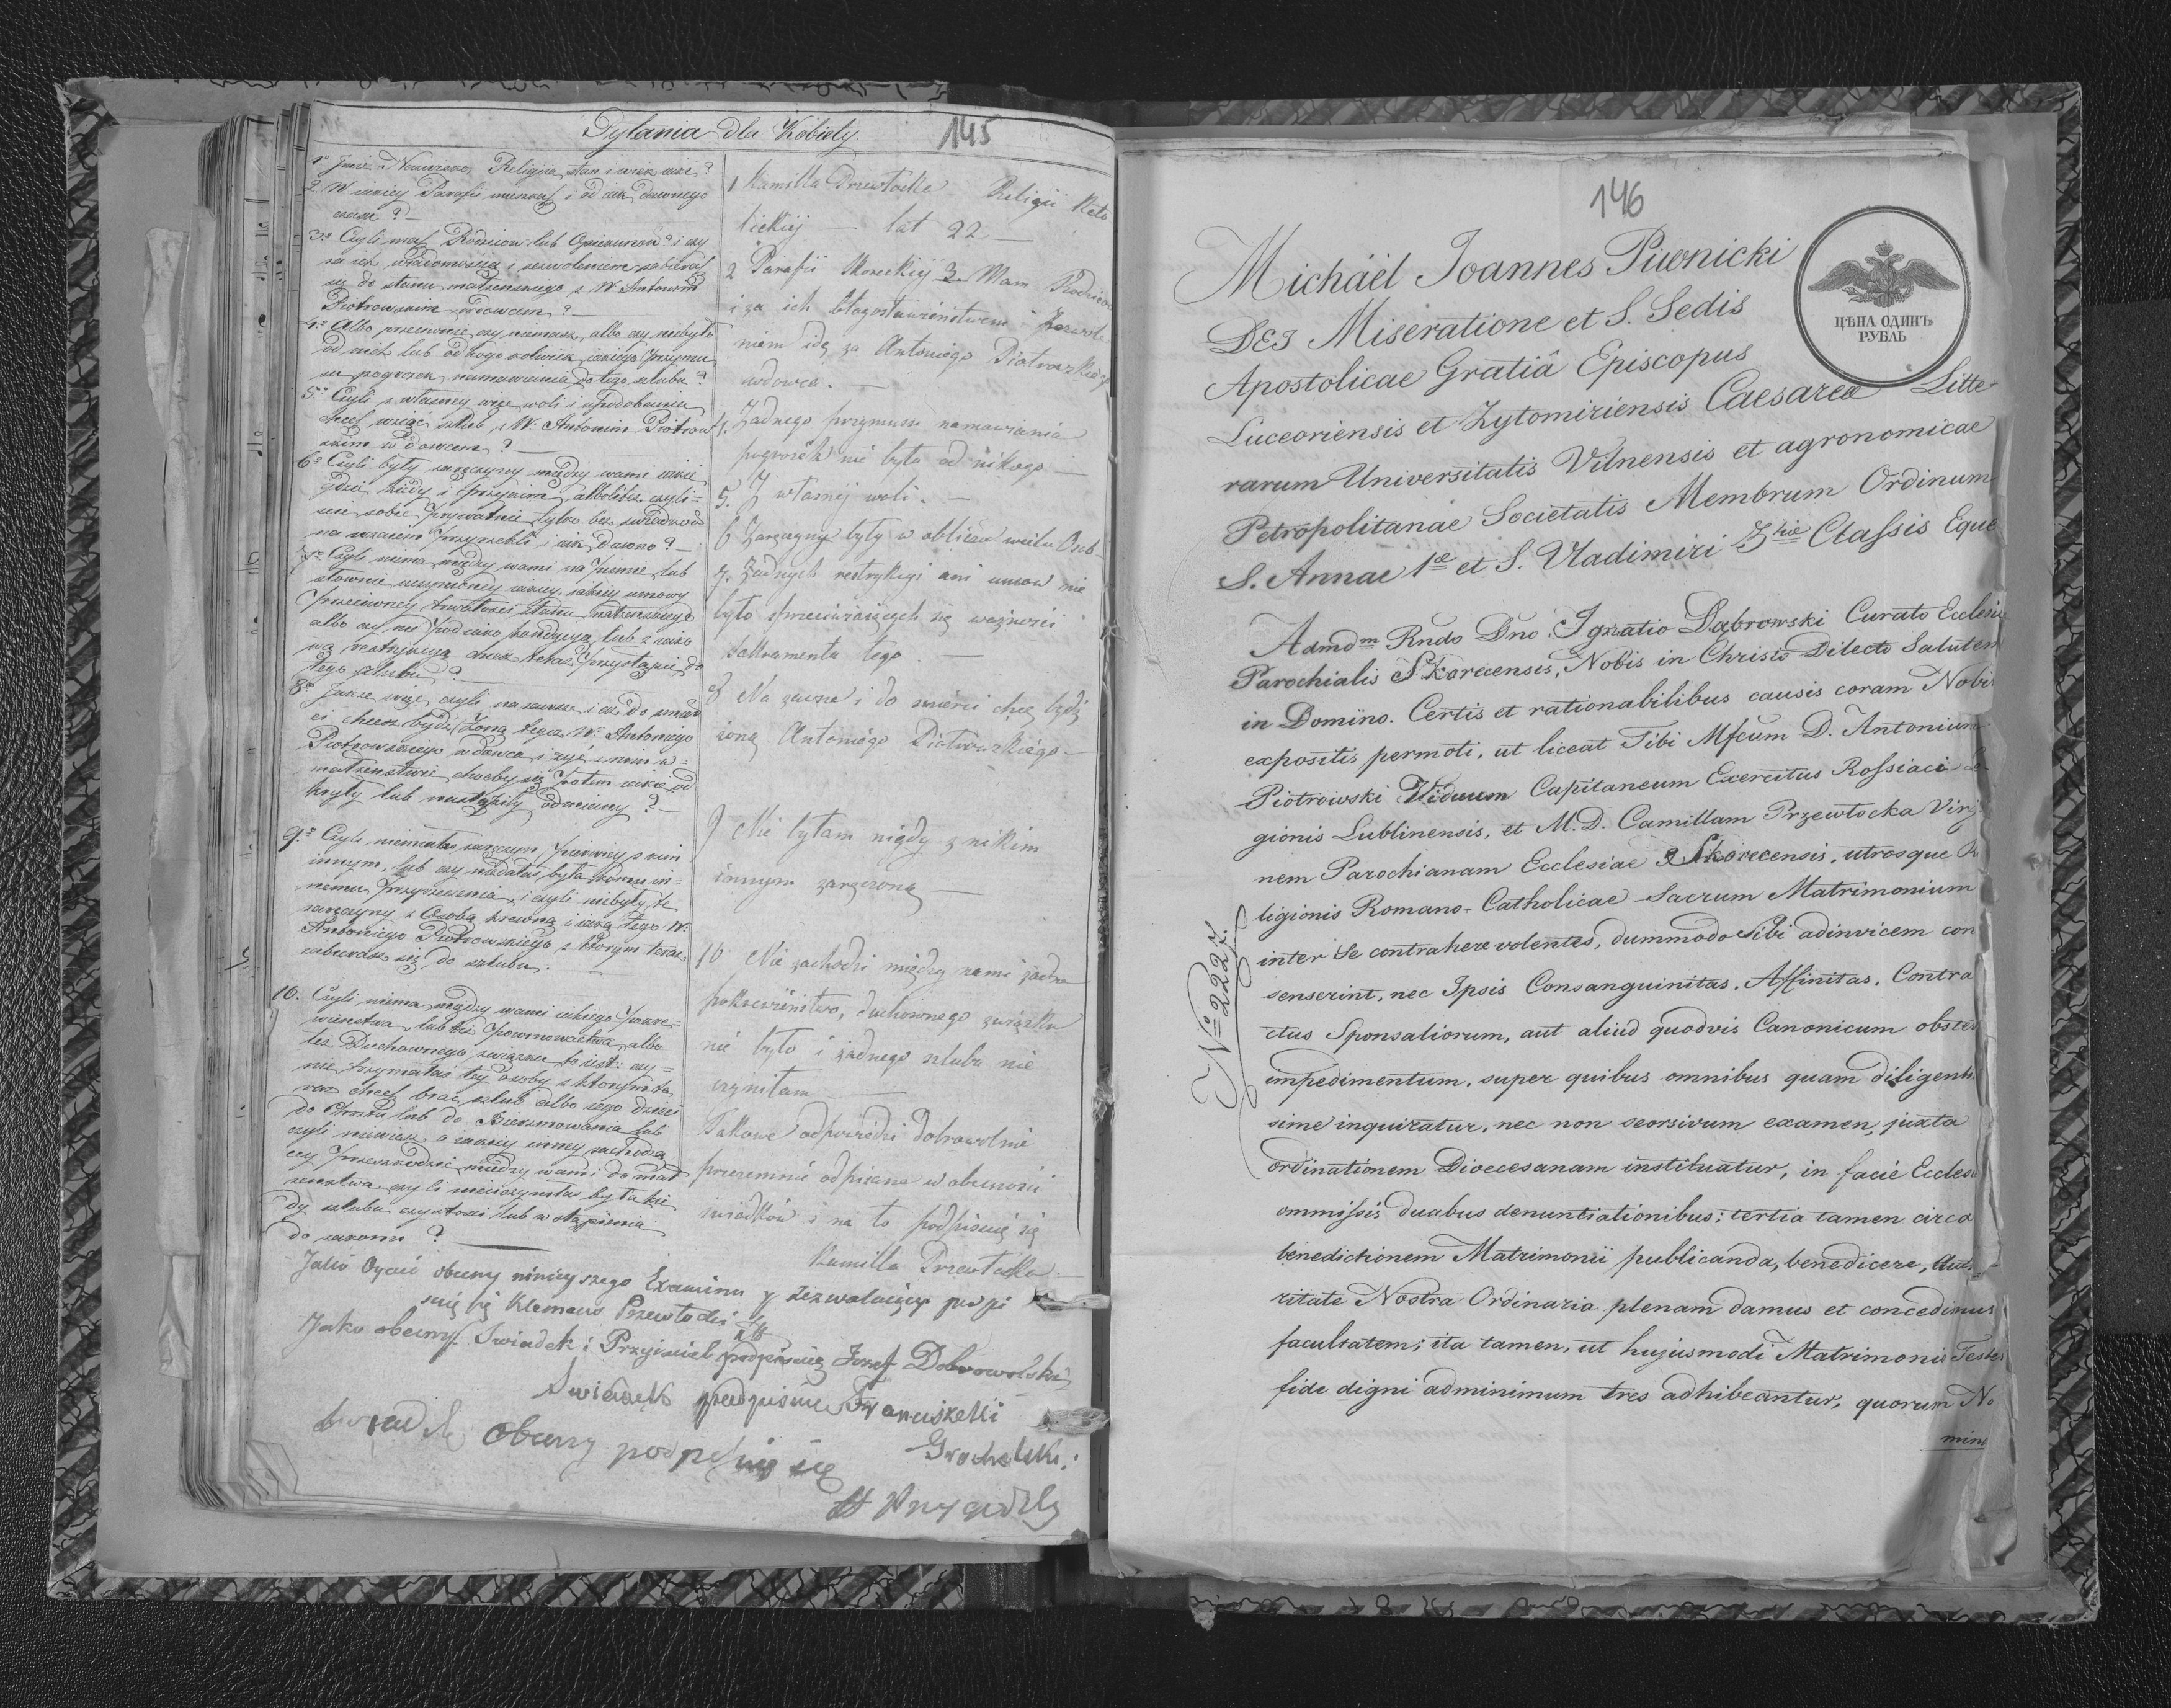 Pytania dla Kobiety
145
1º Imie Nazwisko, Religia, stan i wiek wasz?
2. W iakiey Parafii mieszkasz i od iak dawnego
czasu? –
3º Czyli masz Rodzicow lub Opiekunow? i czy
za ich wiadomością i zezwoleniem zabierasz
się do stanu małżenskiego z W. Antonim
Piotrowskim wdowcem? –
4º Albo przeciwnie czy niemasz, albo czy niebyło
od nich lub od kogo kolwiek iakiego przymu
su pogrozek, namawiania do tego szlubu?
5º Czyli z własney woli i upodobania
chcesz wziąć szlub z W. Antonim Piotrow
skim wdowcem? –
6º Czyli były zaręczyny między wami iakie
gdzie kiedy i przykim, albo też czyli =
scie sobie prywatnie tylko bez swiadkow
na wzaiem przyrzekli i iak dawno? –
7º Czyli niema między wami na pismie lub
słownie uczynioney iakiey takiey umowy
przeciwney trwałości stanu małżenskiego
albo czy nie pod iaką kondycyą lub z iako
wą restrykcyą chcesz teraz przystąpić do
tego szlubu? –
8º Jakże więc czyli na zawsze i aż do smier
ci chcesz bydź Żoną tego W. Antoniego
Piotrowskiego wdowca i żyć z nim w =
małżenstwie choćby się potem iakie od
kryły lub nastąpiły odmiany? –
9º Czyli niemiałas zaręczyn pierwey z kim
innym, lub czy niedałas była komu in =
nemu przyrzeczenia, i czyli niebyły te
zaręczyny z Osobą krewną iaką tego W.
Antoniego Piotrowskiego z ktorym teraz
zabierasz się do szlubu.
10. Czyli niema między wami iakiego pokre =
wienstwa, lub też powinowactwa, albo
też Duchownego związku to iest: czy =
nie trzymałas tey osoby z ktorym te
raz chcesz brać szlub albo iego dzieci
do Chrztu lub do Bierzmowania lub
czyli niewiesz o iakiey inney zachodzą
cey przeszkodzie między wami do mał
żenstwa, czyli nieuczyniłas by takie
dy szlubu czystosci lub wstąpienia
do zakonu? –
1 Kamilla Przewłocka Religii Kato
lickiéj – lat 22 –
2 Parafii Skoreckiéj 3. Mam Rodziców
i za ich błogosławieństwem i zezwole
niem idę za Antoniego Piotrowskiego
wdowca. –
4. Żadnego przymusu namawiania
pogróżek nie było od nikogo –
5. Z własnéj woli. –
6 Zaręczyny były w obliczu wielu Osób
7. Żadnych restrykcyi ani umów nie
było sprzeciwiaiących się ważności
Sakramentu tego. –
8 Na zawsze i do smierci chcę bydź
żoną Antoniégo Piotrowskiégo –
9 Nie byłam nigdy z nikim
innym zaręczoną –
10 Nie zachodzi między nami żadne
pokrewieństwo, duchownego związku
nie było i żadnego szlubu nie
czyniłam –
Takowe odpowiédzi dobrowolnie
przezemnie odpisane w obecności
świadków i na to podpisuię się
Kamilla Przewłocka
Jako Oyciec obecny ninieyszego Examinu y Zezwalaiący podpi
suię się Klemens Przewłocki
Jako obecny Swiadek i Przyiaciel podpisuię Jozef Dobrowolski
Swiadek podpisuie Franciszek
Grochelski
Swiadek obecny podpisuię się
146
ЦѢНА ОДИНЪ
РУБЛЬ
Michäel Joannes Piwnicki
DEI Miseratione et S. Sedis
Apostolicae Gratiâ Episcopus
Luceoriensis et Zytomiriensis Caesareae Litte
rarum Universitatis Vilnensis et agronomicae
Petropolitanae Societatis Membrum Ordinum
S. Annae 1ae et S. Vladimiri 3tiae Classis Eque
Admdm Rndo Dno Ignatio Dąbrowski Curato Ecclesiae
Parochialis Skorecensis, Nobis in Christo Dilecto Salutem
in Domino. Certis et rationabilibus causis coram Nobis
expositis permoti, ut liceat Tibi Mfcum D. Antonium
Piotrowski Viduum Capitaneum Exercitus Rossiaci Le
gionis Lublinensis, et M. D. Camillam Przewłocka Virgi
nem Parochianam Ecclesiae Skorecensis, utrosque Re
ligionis Romano-Catholicae – Sacrum Matrimonium
inter se contrahere volentes, dummodo sibi adinvicem con
senserint, nec Ipsis Consanguinitas, Affinitas, Contra
ctus Sponsaliorum, aut aliud quodvis Canonicum obstet
impedimentum, super quibus omnibus quam diligentis
sime inquiratur, nec non seorsivum examen, juxta
ordinationem Dioecesanam instituatur, in facie Ecclesiae
ommissis duabus denuntiationibus; tertia tamen circa
benedictionem Matrimonii publicanda, benedicere, Autho
ritate Nostra Ordinaria plenam damus et concedimus
facultatem; ita tamen, ut hujusmodi Matrimonii Testes
fide digni adminimum tres adhibeantur, quorum No
mina
Nº 2227.